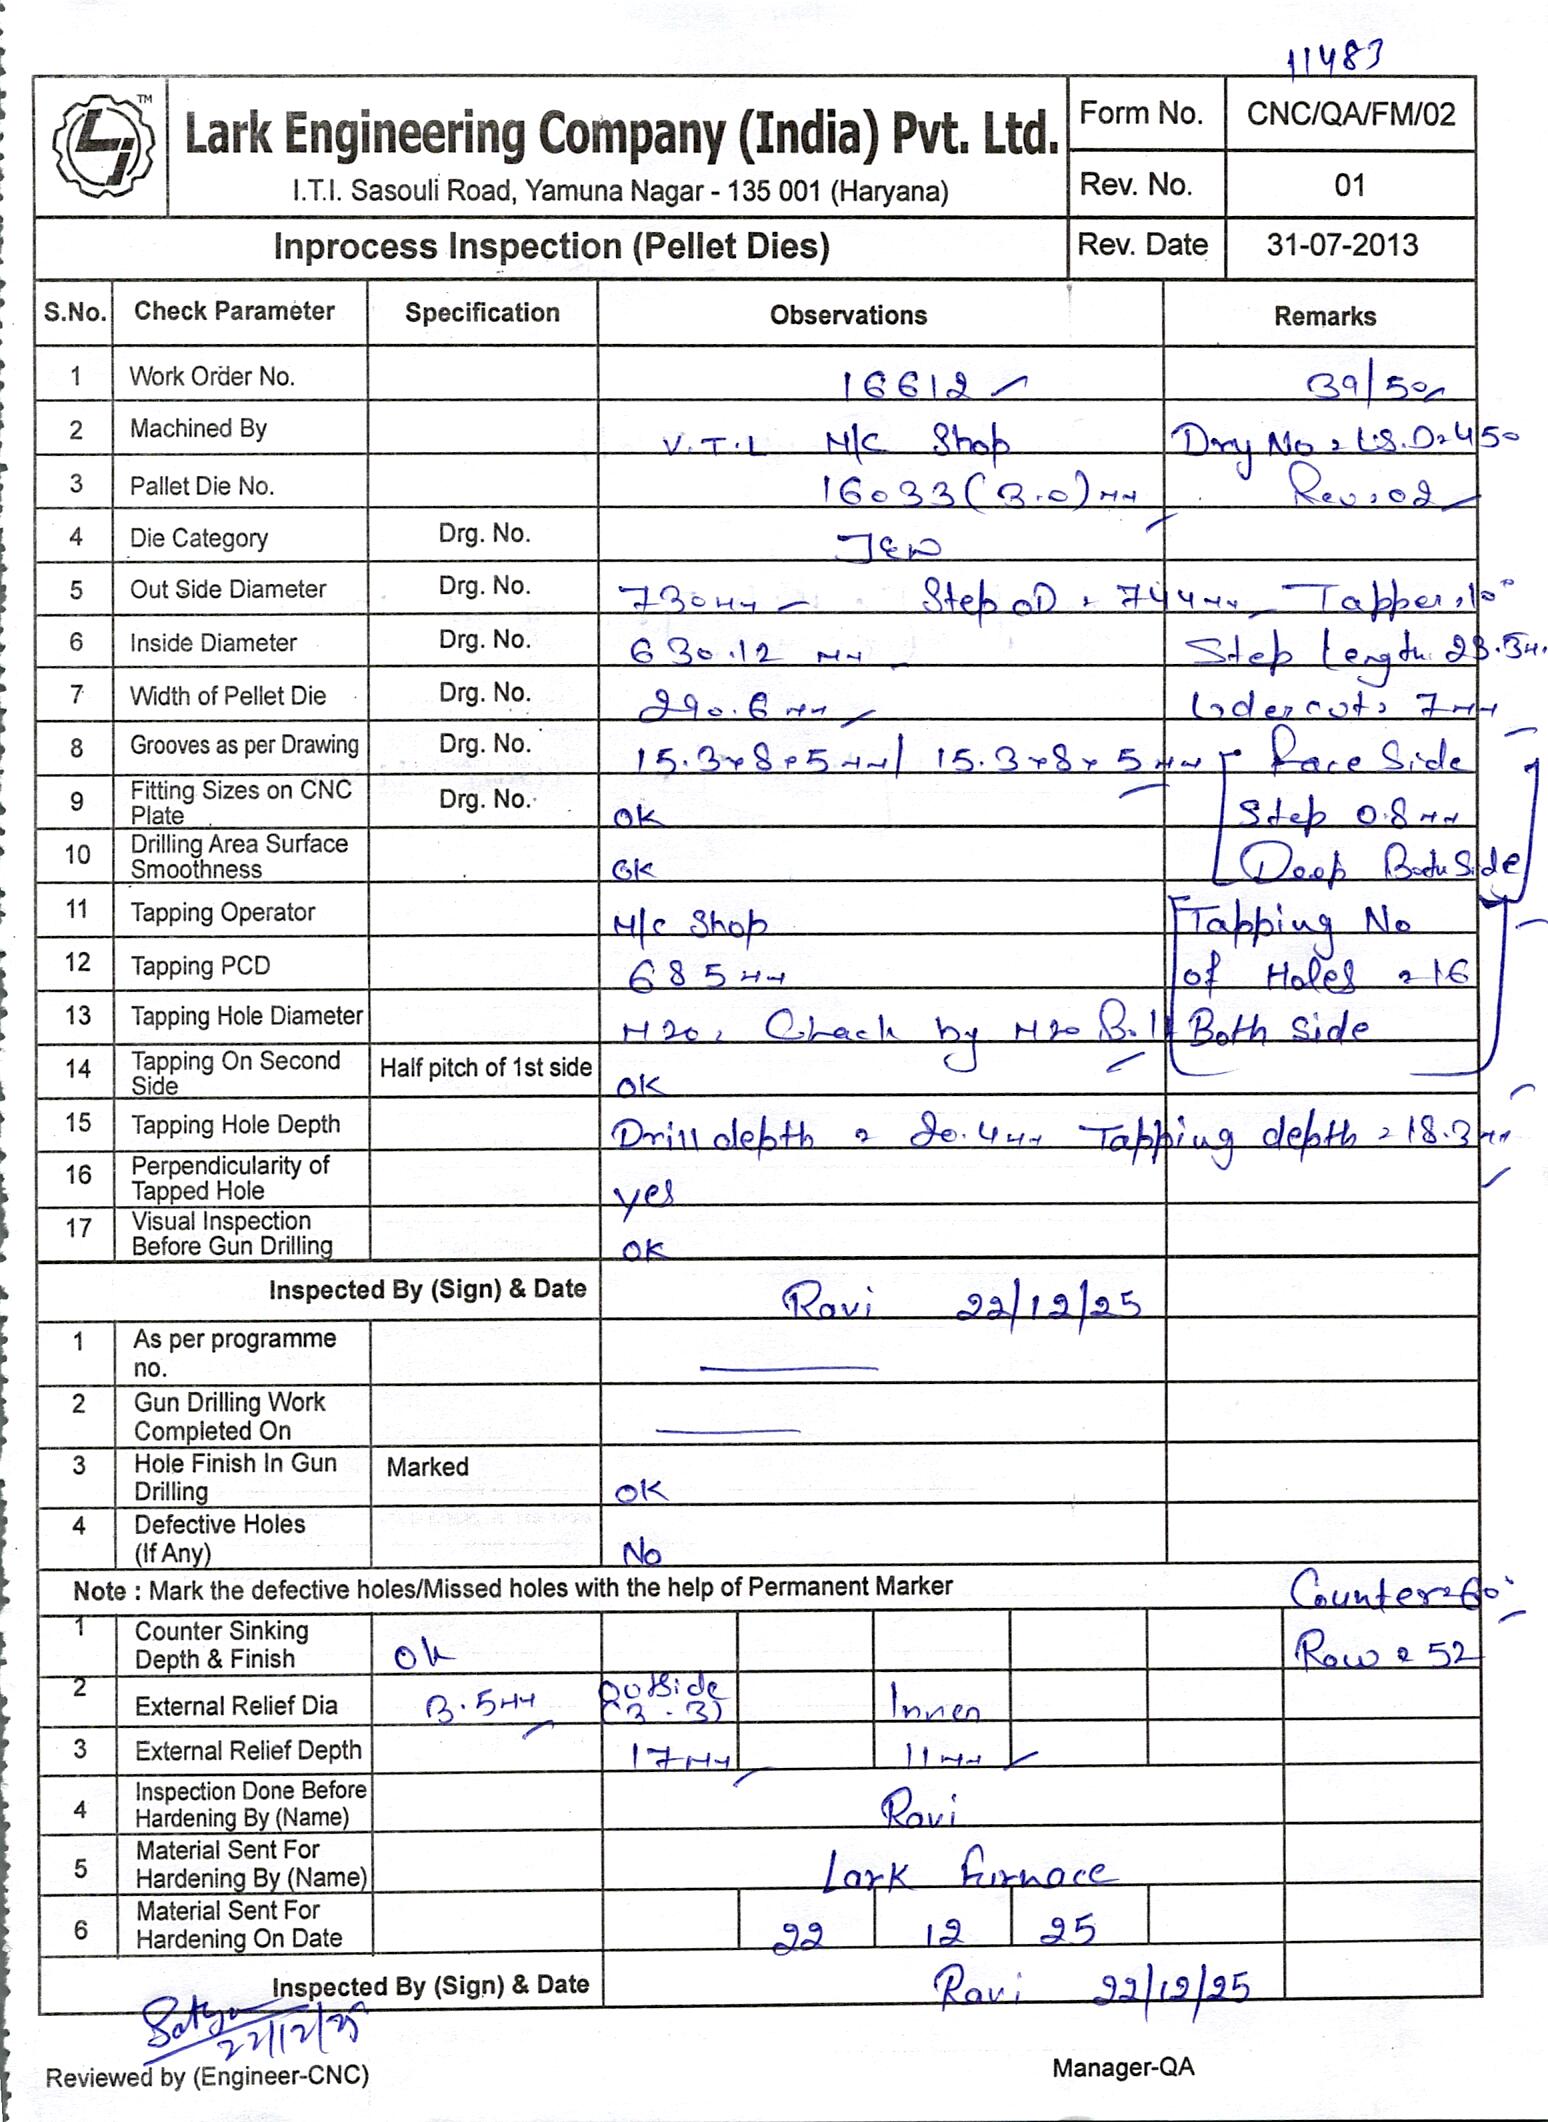 11483
TM
Lark Engineering Company (India) Pvt. Ltd.
I.T.I. Sasouli Road, Yamuna Nagar - 135 001 (Haryana)
Form No. CNC/QA/FM/02
Rev. No. 01
Inprocess Inspection (Pellet Dies) Rev. Date 31-07-2013
S.No. Check Parameter Specification Observations Remarks
1 Work Order No. 16612 39/50
2 Machined By V.T.L M/C Shop Drg No = L.S.D-450
3 Pallet Die No. 16033 (3.0) mm Rev.: 02
4 Die Category Drg. No.
5 Out Side Diameter Drg. No. 730mm Step OD = 744mm Tapper = 10°
6 Inside Diameter Drg. No. 630.12 mm Step Length 23.5mm
7 Width of Pellet Die Drg. No. 290.6mm Udercut = 7mm
8 Grooves as per Drawing Drg. No. 15.3x8x5mm/ 15.3x8x5mm Face Side
9 Fitting Sizes on CNC Plate Drg. No. OK Step 0.8mm
10 Drilling Area Surface Smoothness OK Deep Both Side
11 Tapping Operator M/c Shop Tapping No
12 Tapping PCD 685mm of Holes = 16
13 Tapping Hole Diameter M20, Chack by M20 Bolt Both Side
14 Tapping On Second Side Half pitch of 1st side OK
15 Tapping Hole Depth Drill depth = 20.4mm Tapping depth = 18.3mm
16 Perpendicularity of Tapped Hole yes
17 Visual Inspection Before Gun Drilling OK
Inspected By (Sign) & Date Ravi 22/12/25
1 As per programme no.
2 Gun Drilling Work Completed On
3 Hole Finish In Gun Drilling Marked OK
4 Defective Holes (If Any) No
Note : Mark the defective holes/Missed holes with the help of Permanent Marker Counter=60°
1 Counter Sinking Depth & Finish Ok Row = 52
2 External Relief Dia 3.5mm Outside (3-3) Innen
3 External Relief Depth 17mm 11mm
4 Inspection Done Before Hardening By (Name) Ravi
5 Material Sent For Hardening By (Name) Lark Furnace
6 Material Sent For Hardening On Date 22 12 25
Inspected By (Sign) & Date Ravi 22/12/25
22/12/25
Reviewed by (Engineer-CNC) Manager-QA